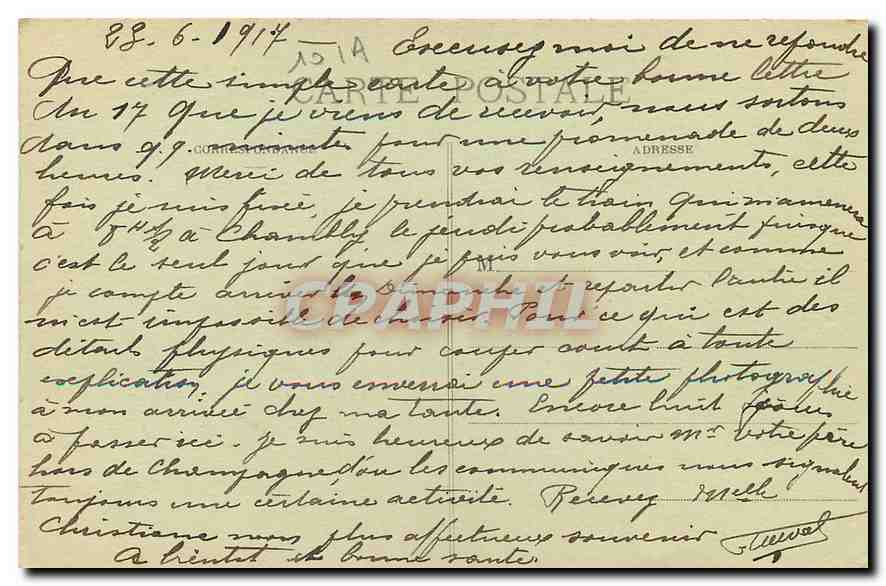 23-6-1917
101A
CARTE POSTALE
CORRESPONDANCE
ADRESSE
M
CPARHIL
Excusez moi de ne répondre
Que cette simple carte à votre bonne lettre
du 17 que je viens de recevoir, nous sortons
dans q.q. minutes pour une promenade de deux
heures. Merci de tous vos renseignements, cette
fois je suis fixé, je prendrai le train qui m'amenera
à 8H à Chambly le jeudi probablement puisque
c'est le seul jour que je puis vous voir, et comme
je compte arriver le Dimanche et repartir l'autre il
m'est impossible de choisir. Pour ce qui est des
détails physiques pour couper court à toute
explication, je vous enverrai une petite photographie
à mon arrivée chez ma tante. Encore huit jours
à passer ici. Je suis heureux de savoir Mr votre père
hors de Champagne, d'où les communiqués nous signalent
toujours une certaine activité. Recevez Melle
Christiane mon plus affectueux souvenir
A bientôt et bonne santé.